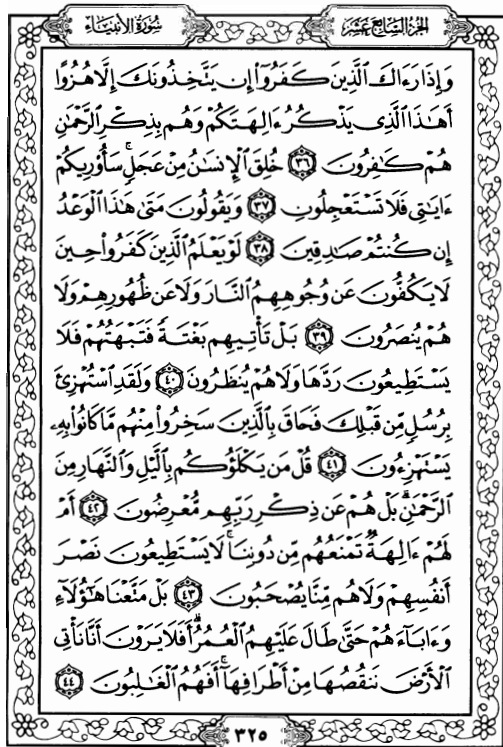 الجزء السابع عشر
سورة الأنبياء
وَإِذَا رَءَاكَ ٱلَّذِينَ كَفَرُوٓا۟ إِن يَتَّخِذُونَكَ إِلَّا هُزُوًا
أَهَـٰذَا ٱلَّذِى يَذْكُرُ ءَالِهَتَكُمْ وَهُم بِذِكْرِ ٱلرَّحْمَـٰنِ
هُمْ كَـٰفِرُونَ ٣٦ خُلِقَ ٱلْإِنسَـٰنُ مِنْ عَجَلٍ ۚ سَأُو۟رِيكُمْ
ءَايَـٰتِى فَلَا تَسْتَعْجِلُونِ ٣٧ وَيَقُولُونَ مَتَىٰ هَـٰذَا ٱلْوَعْدُ
إِن كُنتُمْ صَـٰدِقِينَ ٣٨ لَوْ يَعْلَمُ ٱلَّذِينَ كَفَرُوا۟ حِينَ
لَا يَكُفُّونَ عَن وُجُوهِهِمُ ٱلنَّارَ وَلَا عَن ظُهُورِهِمْ وَلَا
هُمْ يُنصَرُونَ ٣٩ بَلْ تَأْتِيهِم بَغْتَةً فَتَبْهَتُهُمْ فَلَا
يَسْتَطِيعُونَ رَدَّهَا وَلَا هُمْ يُنظَرُونَ ٤٠ وَلَقَدِ ٱسْتُهْزِئَ
بِرُسُلٍ مِّن قَبْلِكَ فَحَاقَ بِٱلَّذِينَ سَخِرُوا۟ مِنْهُم مَّا كَانُوا۟ بِهِۦ
يَسْتَهْزِءُونَ ٤١ قُلْ مَن يَكْلَؤُكُم بِٱلَّيْلِ وَٱلنَّهَارِ مِنَ
ٱلرَّحْمَـٰنِ ۗ بَلْ هُمْ عَن ذِكْرِ رَبِّهِم مُّعْرِضُونَ ٤٢ أَمْ
لَهُمْ ءَالِهَةٌ تَمْنَعُهُم مِّن دُونِنَا ۚ لَا يَسْتَطِيعُونَ نَصْرَ
أَنفُسِهِمْ وَلَا هُم مِّنَّا يُصْحَبُونَ ٤٣ بَلْ مَتَّعْنَا هَـٰٓؤُلَآءِ
وَءَابَآءَهُمْ حَتَّىٰ طَالَ عَلَيْهِمُ ٱلْعُمُرُ ۗ أَفَلَا يَرَوْنَ أَنَّا نَأْتِى
ٱلْأَرْضَ نَنقُصُهَا مِنْ أَطْرَافِهَآ ۚ أَفَهُمُ ٱلْغَـٰلِبُونَ ٤٤
٣٢٥